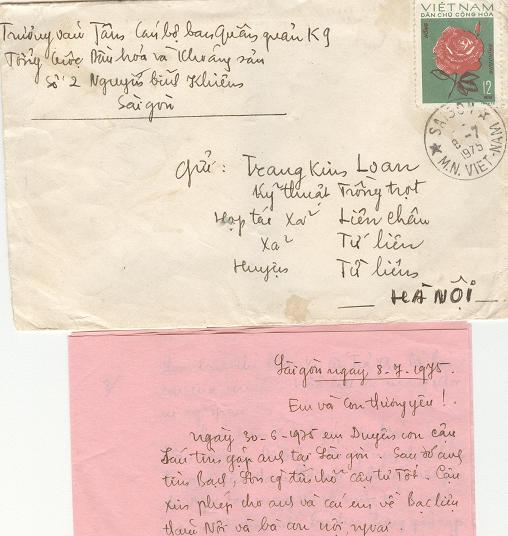 Trương văn Tâm Cán bộ ban Quân quản K9
Tổng Cục Dầu hóa và Khoáng sản
Số 2 Nguyễn bỉnh Khiêm
Sài gòn
VIỆT NAM
DÂN CHỦ CỘNG HÒA
12
SAIGON
8-7
1975
M.N. VIET-NAM
Gửi: Trang Kim Loan
Kỹ thuật Trồng trọt
Hợp tác Xã Liên châu
Xã Tứ liên
Huyện Từ liêm
HÀ NỘI
Sài gòn ngày 8-7-1975.
Em và Con thương yêu!
Ngày 30-6-1975 em Duyên con cậu
Sáu tìm gặp anh tại Sài gòn. Sau đó anh
tìm Bạch, Sơn có tìm chở cậu tư Tốt. Cậu
xin phép cho anh và cái em về Bạc liêu
thăm Nội và bà con nội, ngoại.